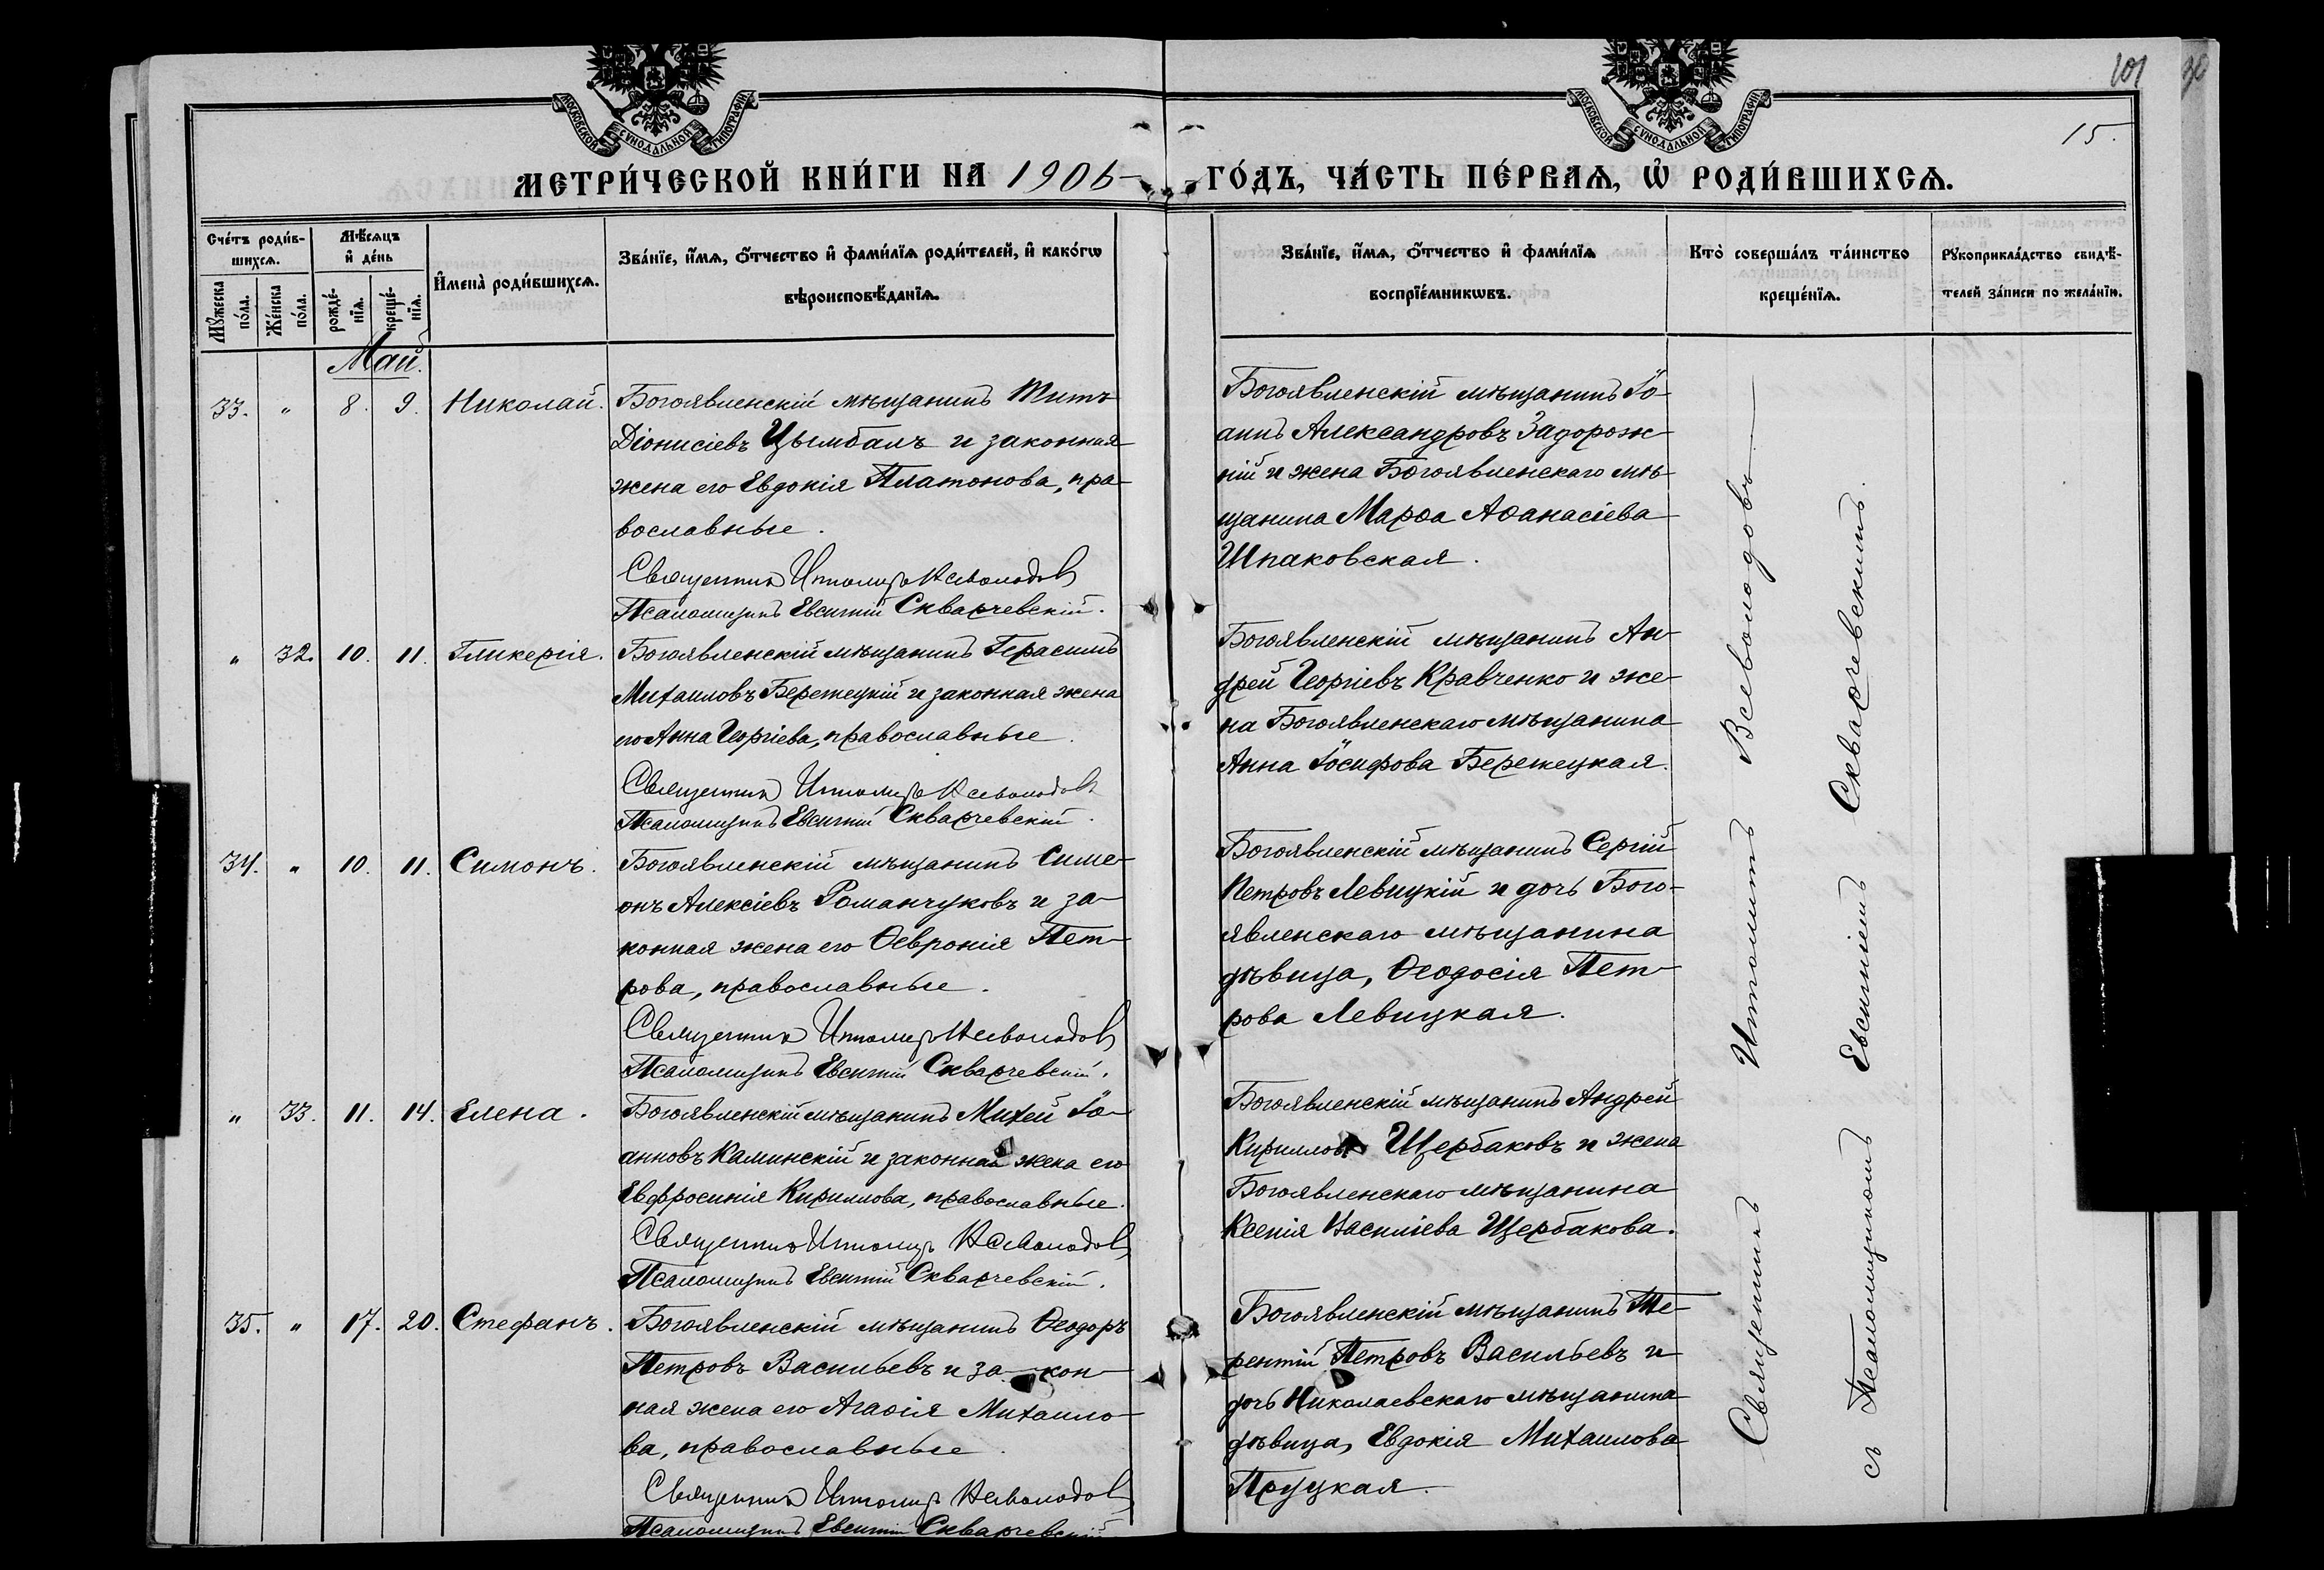 101
30
15.
МОСКОВСКОЙ СѴНОДАЛЬНОЙ ТИПОГРАФІИ
МОСКОВСКОЙ СѴНОДАЛЬНОЙ ТИПОГРАФІИ
МЕТРИ́ЧЕСКОЙ КНИ́ГИ НА 1906 ГО́ДЪ, ЧА́СТЬ ПЕ́РВАѦ, Ѡ҆ РОДИ́ВШИХСѦ.
Сче́тъ роди́в-
шихсѧ.
Мꙋ́жеска по́ла.
Же́нска по́ла.
Мѣ́сѧцъ
и҆ де́нь
рожде́-
нїѧ.
креще́-
нїѧ.
И҆мена̀ роди́вшихсѧ.
Зва́нїе, и҆́мѧ, ѻ҆́тчество и҆ фами́лїѧ роди́телей, и҆ како́гѡ
вѣроисповѣ́данїѧ.
Зва́нїе, и҆́мѧ, ѻ҆́тчество и҆ фами́лїѧ
воспрїе́мникѡвъ.
Кто̀ соверша́лъ та́инство
креще́нїѧ.
Рꙋкоприкла́дство свидѣ́-
телей за́писи по жела́нїю.
Май.
33. " 8. 9. Николай.
Богоявленскій мѣщанинъ Титъ
Діонисіевъ Цымбалъ и законная
жена его Евдокія Платонова, пра-
вославные.
Священникъ Ипполитъ Всеволодовъ
Псаломщикъ ЕвсигнійСкварчевскій.
Богоявленскій мѣщанинъ Іо-
аннъ Александровъ Задорож-
ній и жена Богоявленскаго мѣ-
щанина Марѳа Аѳанасіева
Шпаковская.
" 32. 10. 11. Гликерія.
Богоявленскій мѣщанинъ Герасимъ
Михаиловъ Бережецкій и законная жена
его Анна Георгіева, православные.
Священникъ Ипполитъ Всеволодовъ
Псаломщикъ Евсигній Скварчевскій.
Богоявленскій мѣщанинъ Ан-
дрей Георгіевъ Кравченко и же-
на Богоявленскаго мѣщанина
Анна Іосифова Бережецкая.
34. " 10. 11. Симонъ.
Богоявленскій мѣщанинъ Симе-
онъ Алексіевъ Романчуковъ и за-
конная жена его Ѳевронія Пет-
рова, православные.
Священникъ Ипполитъ Всеволодовъ
Псаломщикъ Евсигній Скварчевскій.
Богоявленскій мѣщанинъ Сергій
Петровъ Левицкій и дочь Бого-
явленскаго мѣщанина
дѣвица, Ѳеодосія Пет-
рова Левицкая.
" 33. 11. 14. Елена.
Богоявленскій мѣщанинъ Михей Іо-
анновъ Каминскій и законная жена его
Евфросинія Кириллова, православные.
Священникъ Ипполитъ Всеволодовъ
Псаломщикъ Евсигній Скварчевскій.
Богоявленскій мѣщанинъ Андрей
Кирилловъ Щербаковъ и жена
Богоявленскаго мѣщанина
Ксенія Василіева Щербакова.
35. " 17. 20. Стефанъ.
Богоявленскій мѣщанинъ Ѳеодоръ
Петровъ Васильевъ и за-кон-
ная жена его Агаѳія Михаило-
ва, православные.
Священникъ Ипполитъ Всеволодовъ
Псаломщикъ Евсигній Скварчевскій
Богоявленскій мѣщанинъ Те-
рентій Петровъ Васильевъ и
дочь Николаевскаго мѣщанина
дѣвица, Евдокія Михаилова
Пруцкая.
Священникъ Ипполитъ Всеволодовъ
съ Псаломщикомъ Евсигніемъ Скварчевскимъ.